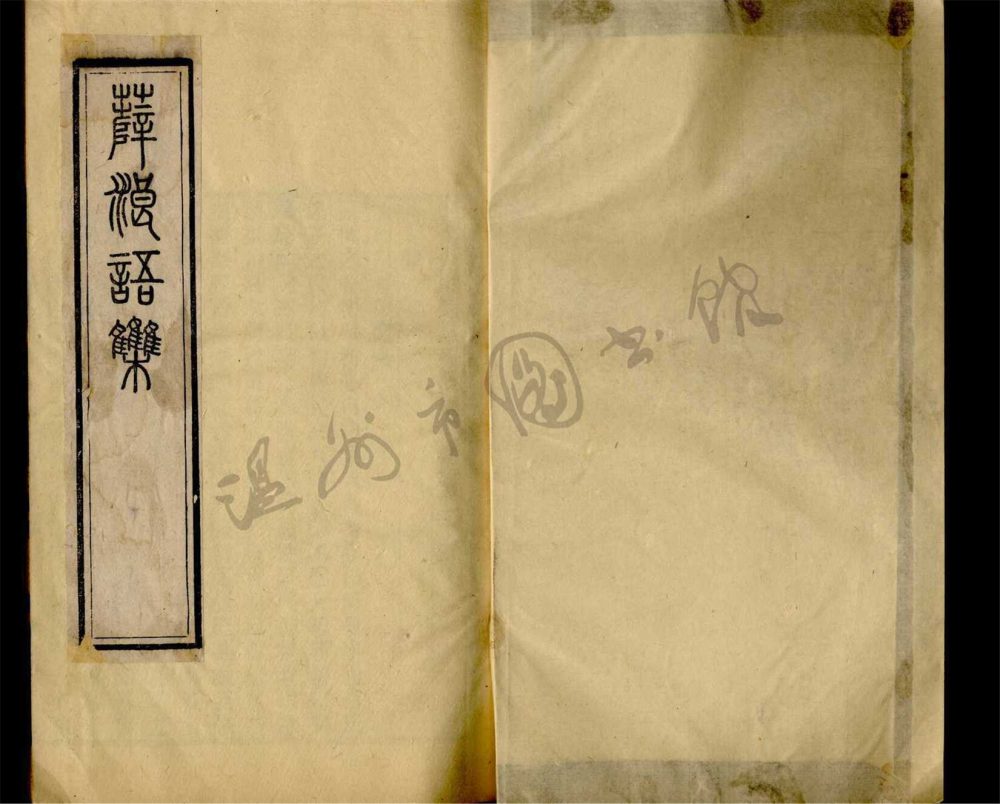 薛浪語集
温州市圖书馆